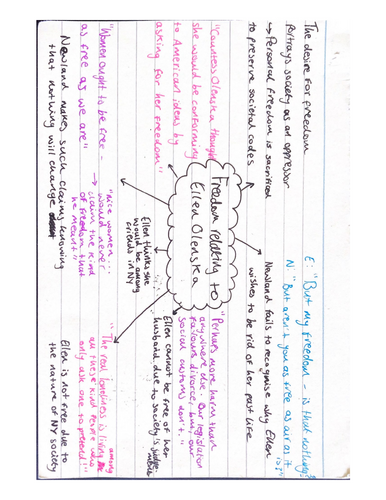 The desire for freedom
Portrays society as an oppressor
→ Personal freedom is sacrificed
to preserve societal codes
E: "But my freedom - is that nothing?"
N: "But aren't you as free as air as it
is?"
Newland fails to recognise why Ellen
wishes to be rid of her past life
"Countess Olenska thought
she would be conforming
to American ideas by
asking for her freedom"
Freedom relating to
Ellen Olenska
"Perhaps more harm than
anywhere else. Our legislation
favours divorce, but, our
social customs don't."
Ellen cannot be free of her
husband due to society's
Ellen thinks she
would be among
friends in NY
"Women ought to be free -
as free as we are"
"nice women...
would never
→ claim the kind
of freedom that
he meant"
Newland makes such claims knowing
that nothing will change
"The real loneliness is living among
all these kind people who
only ask one to pretend!"
Ellen is not free due to
the nature of NY society